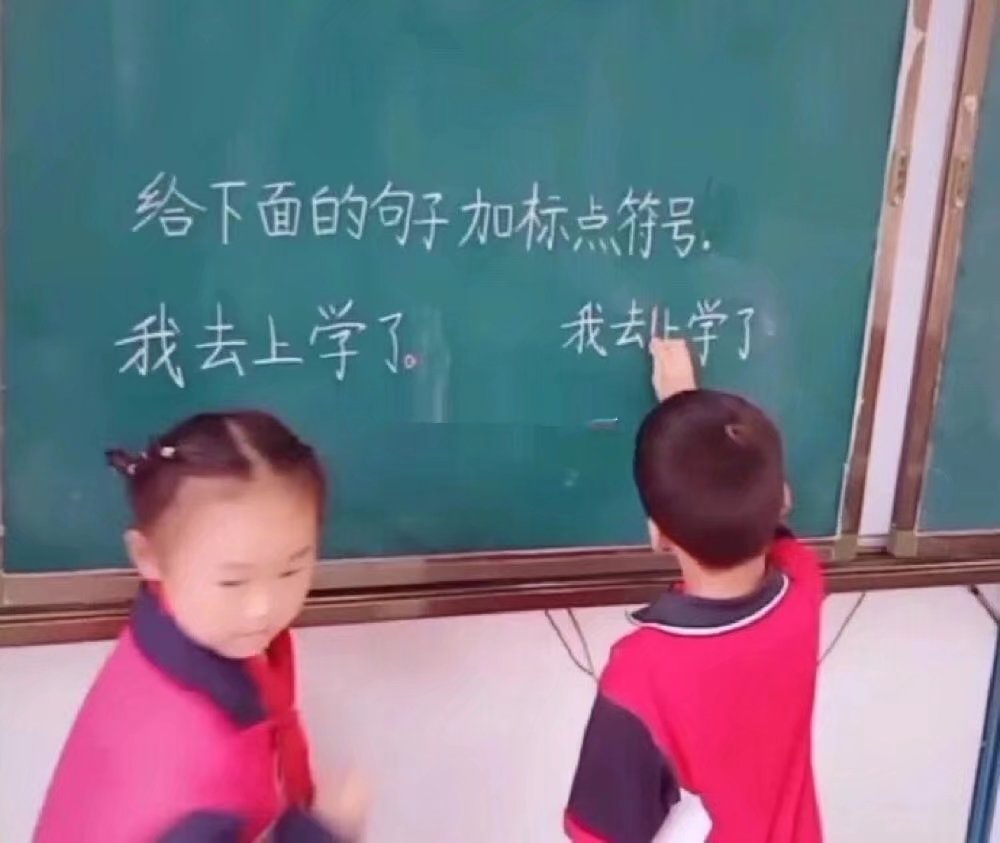 给下面的句子加标点符号.
我去上学了。 我去上学了